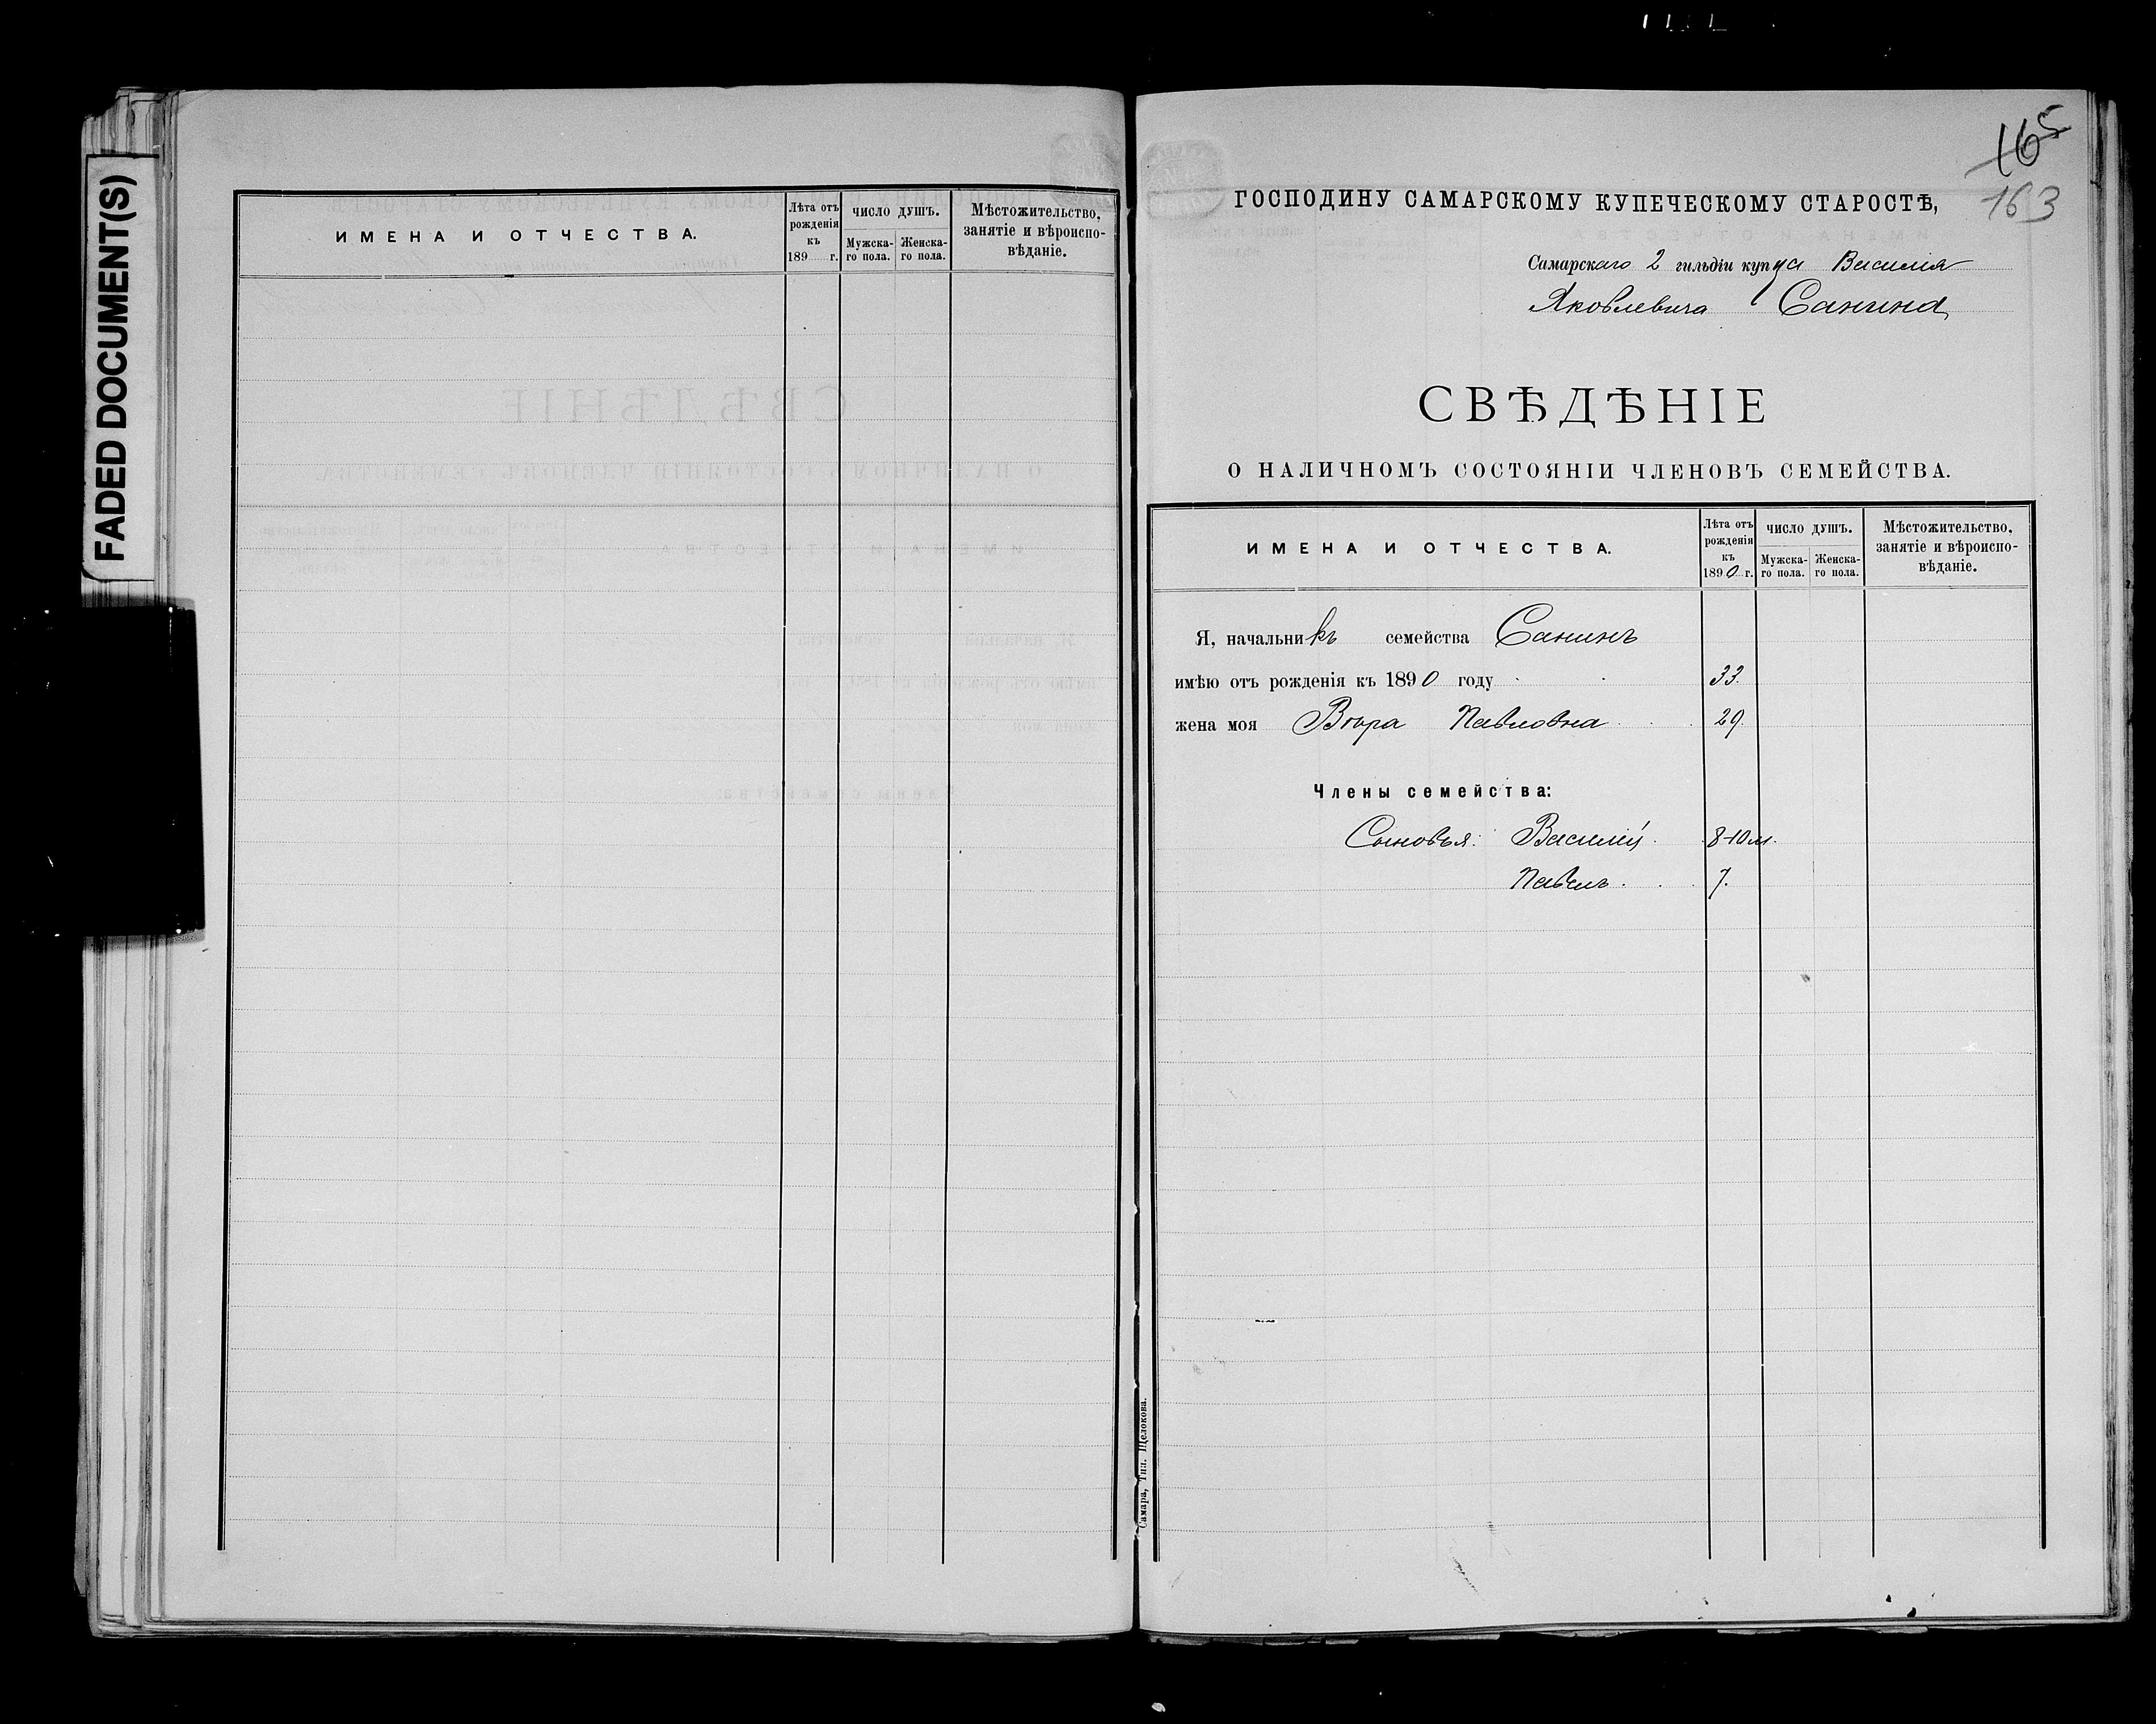 FADED DOCUMENT(S)
ИМЕНА И ОТЧЕСТВА.
Лѣта отъ рожденія къ 189 г.
ЧИСЛО ДУШЪ.
Мужска-го пола.
Женска-го пола.
Мѣстожительство, занятіе и вѣроиспо-вѣданіе.
165
163
ГОСПОДИНУ САМАРСКОМУ КУПЕЧЕСКОМУ СТАРОСТѢ,
Самарскаго 2 гильдіи купца Василія
Яковлевича Санина
СВѢДѢНІЕ
О НАЛИЧНОМЪ СОСТОЯНІИ ЧЛЕНОВЪ СЕМЕЙСТВА.
ИМЕНА И ОТЧЕСТВА.
Лѣта отъ рожденія къ 1890 г.
ЧИСЛО ДУШЪ.
Мужска-го пола.
Женска-го пола.
Мѣстожительство, занятіе и вѣроиспо-вѣданіе.
Я, начальникъ семейства Санинъ
имѣю отъ рожденія къ 1890 году 33.
жена моя Вѣра Павловна 29.
Члены семейства:
Сыновья: Василій. 8-10 м.
Павелъ. 7.
Самара, Тип. Щелокова.